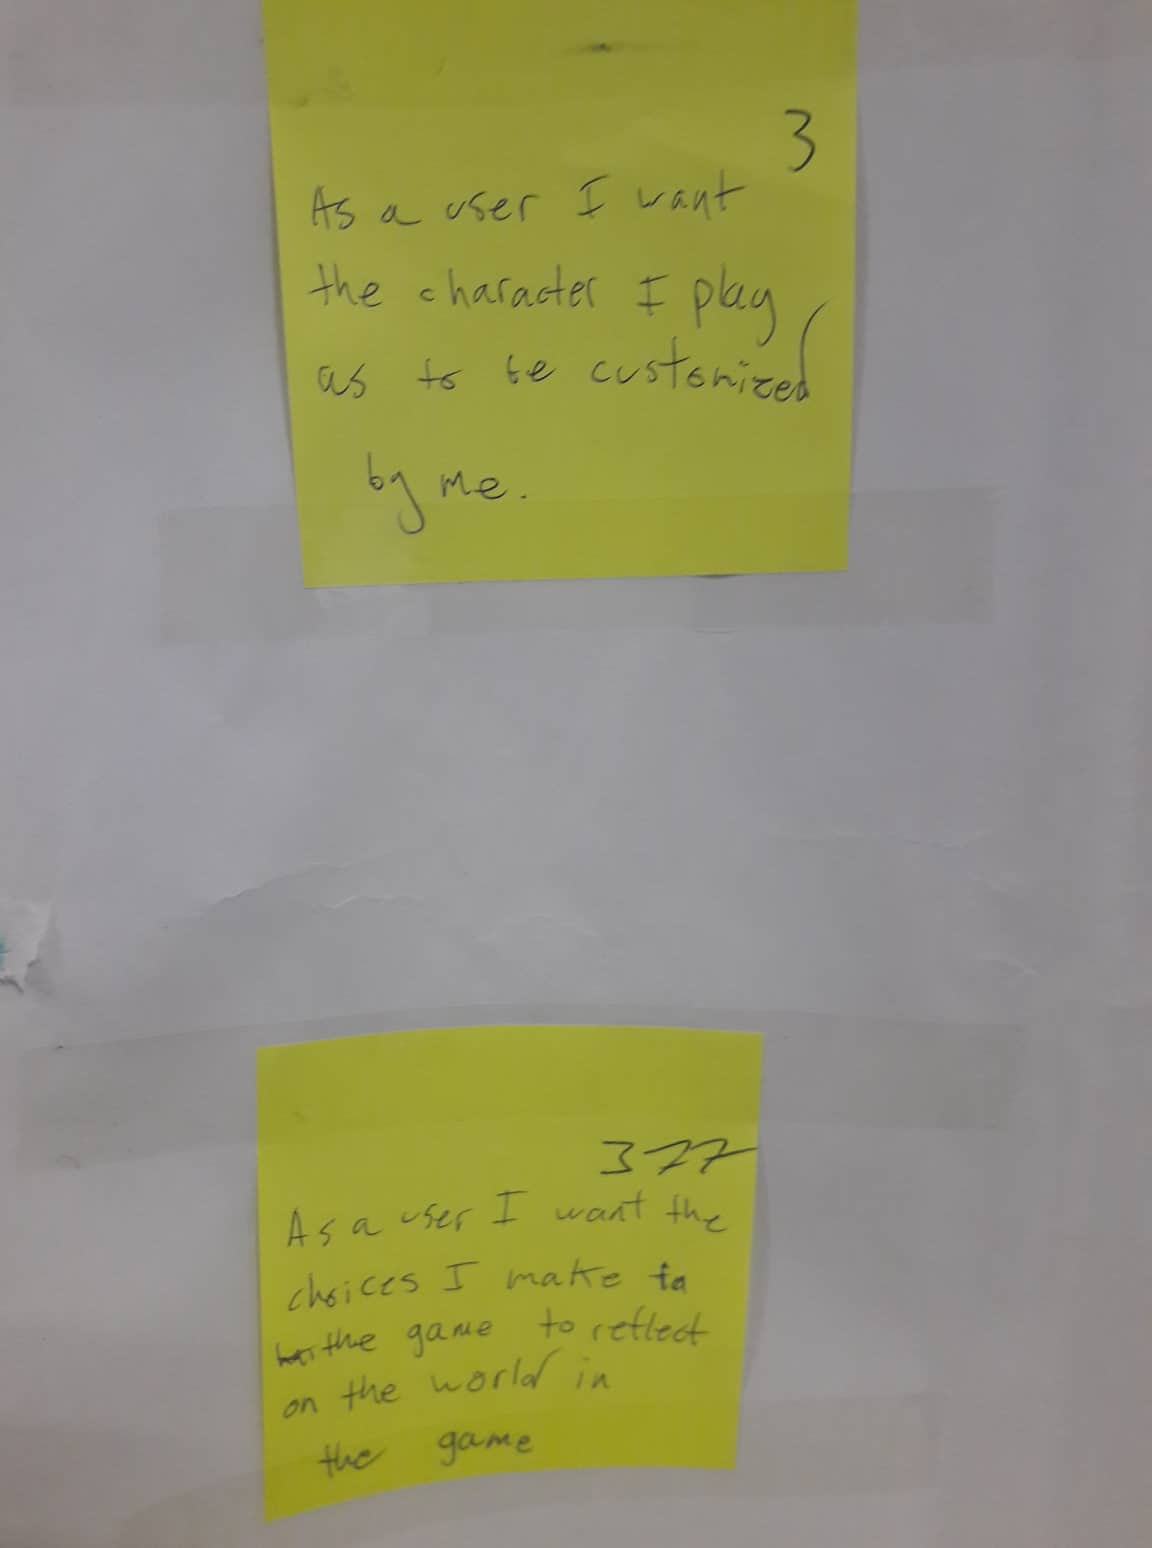 3
As a user I want
the character I play
as to be customized
by me.
377
As a user I want the
choices I make to
the game to reflect
on the world in
the game